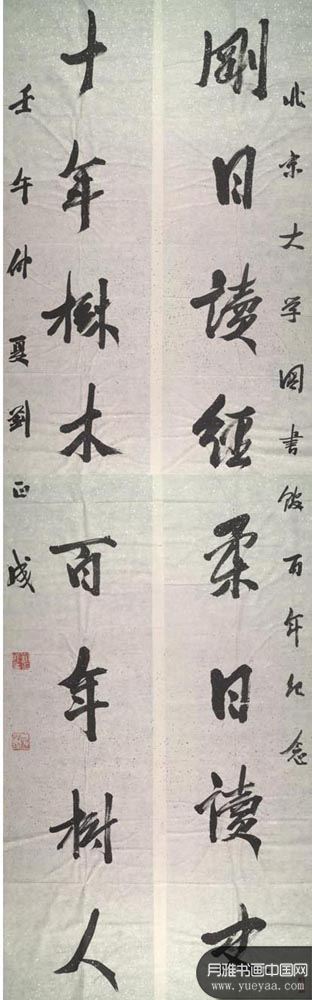 北京大学图书馆百年纪念
剛日讀經柔日讀史
十年樹木百年樹人
壬午仲夏劉正成
月雅书画中国网
www.yueyaa.com